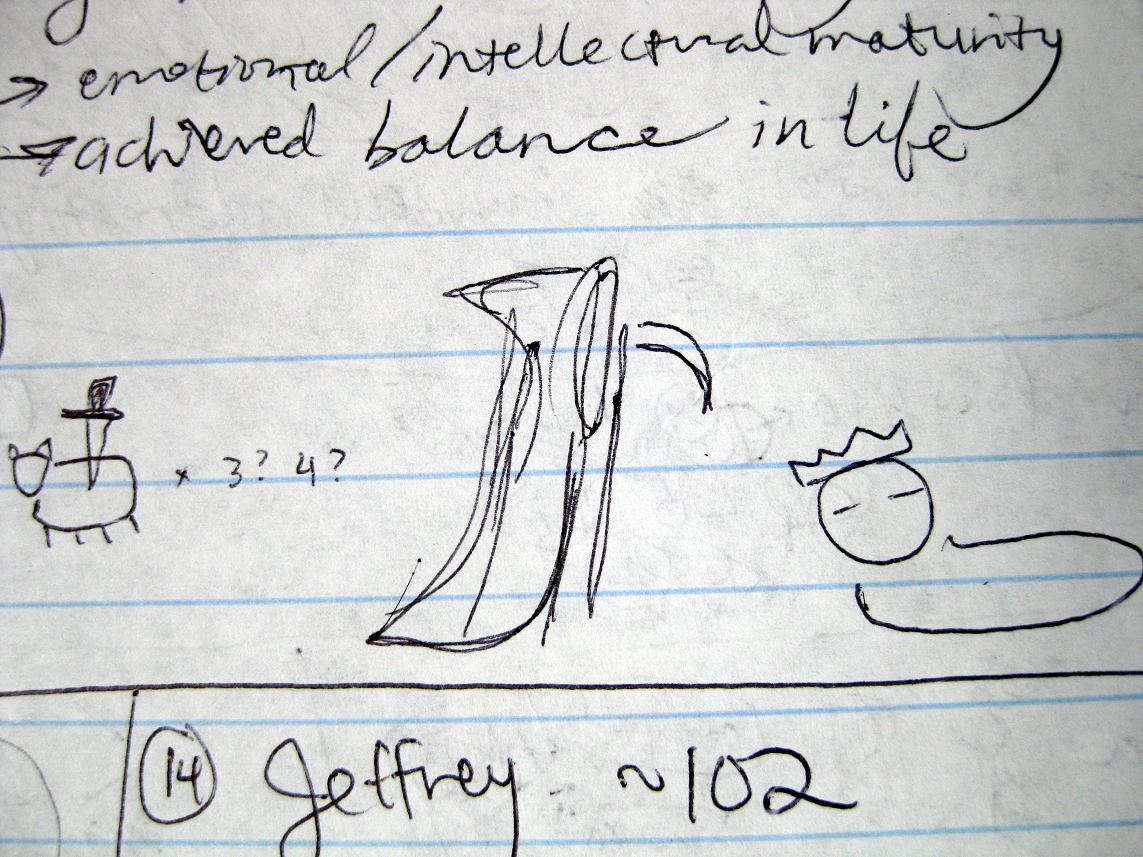 → emotional/intellectual maturity
→ achieved balance in life
x 3? 4?
14 Jeffrey ~102